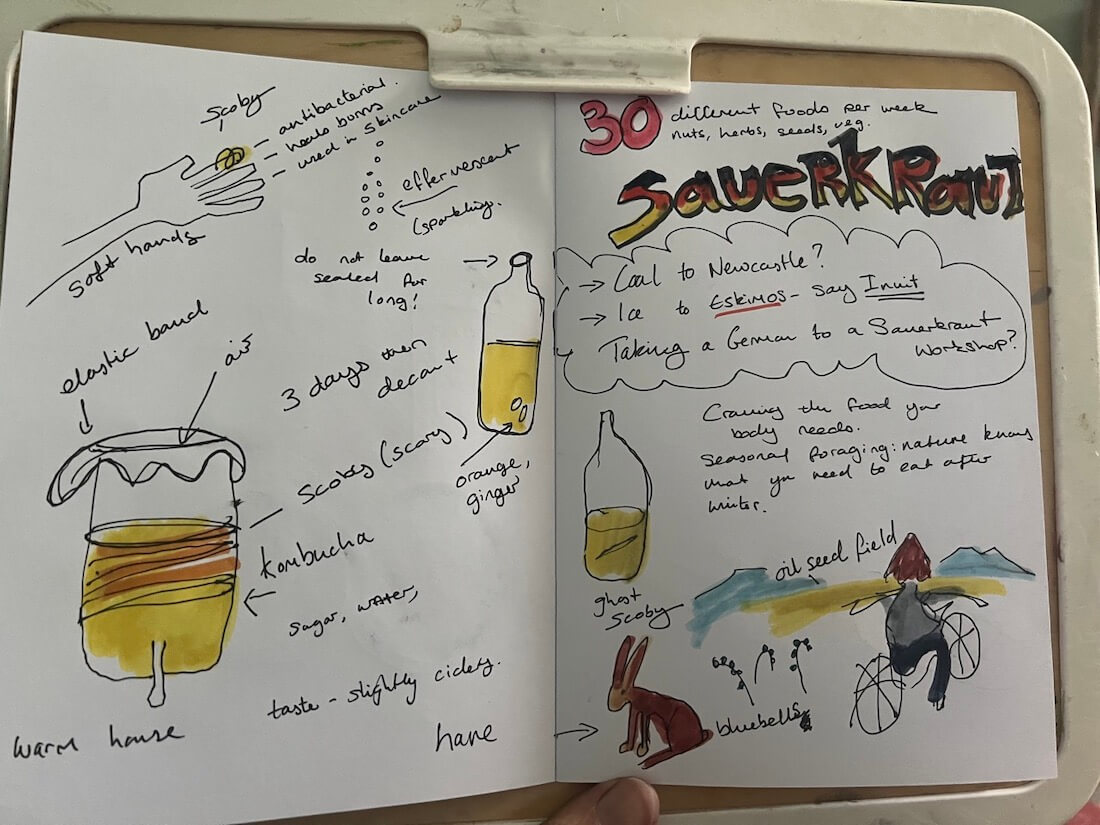 Scoby
antibacterial.
heals burns
used in skincare
soft hands
effervescent
(sparkling.
do not leave
sealed for
long!
elastic band
air
3 days then
decant
Scoby (scary)
orange,
ginger
kombucha
sugar, water,
taste - slightly cidery.
warm house
hare
30 different foods per week
nuts, herbs, seeds, veg.
SauerkRauT
→ Coal to Newcastle?
→ Ice to Eskimos - say Inuit
Taking a German to a Sauerkraut
Workshop?
Craving the food your
body needs.
Seasonal foraging: nature knows
what you need to eat after
winter.
oil seed field
ghost
Scoby
bluebells